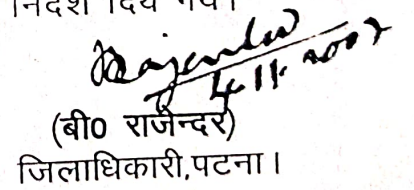 निदेश दिये गये।
Rajender
4.11.2007
(बी0 राजेन्दर)
जिलाधिकारी,पटना।